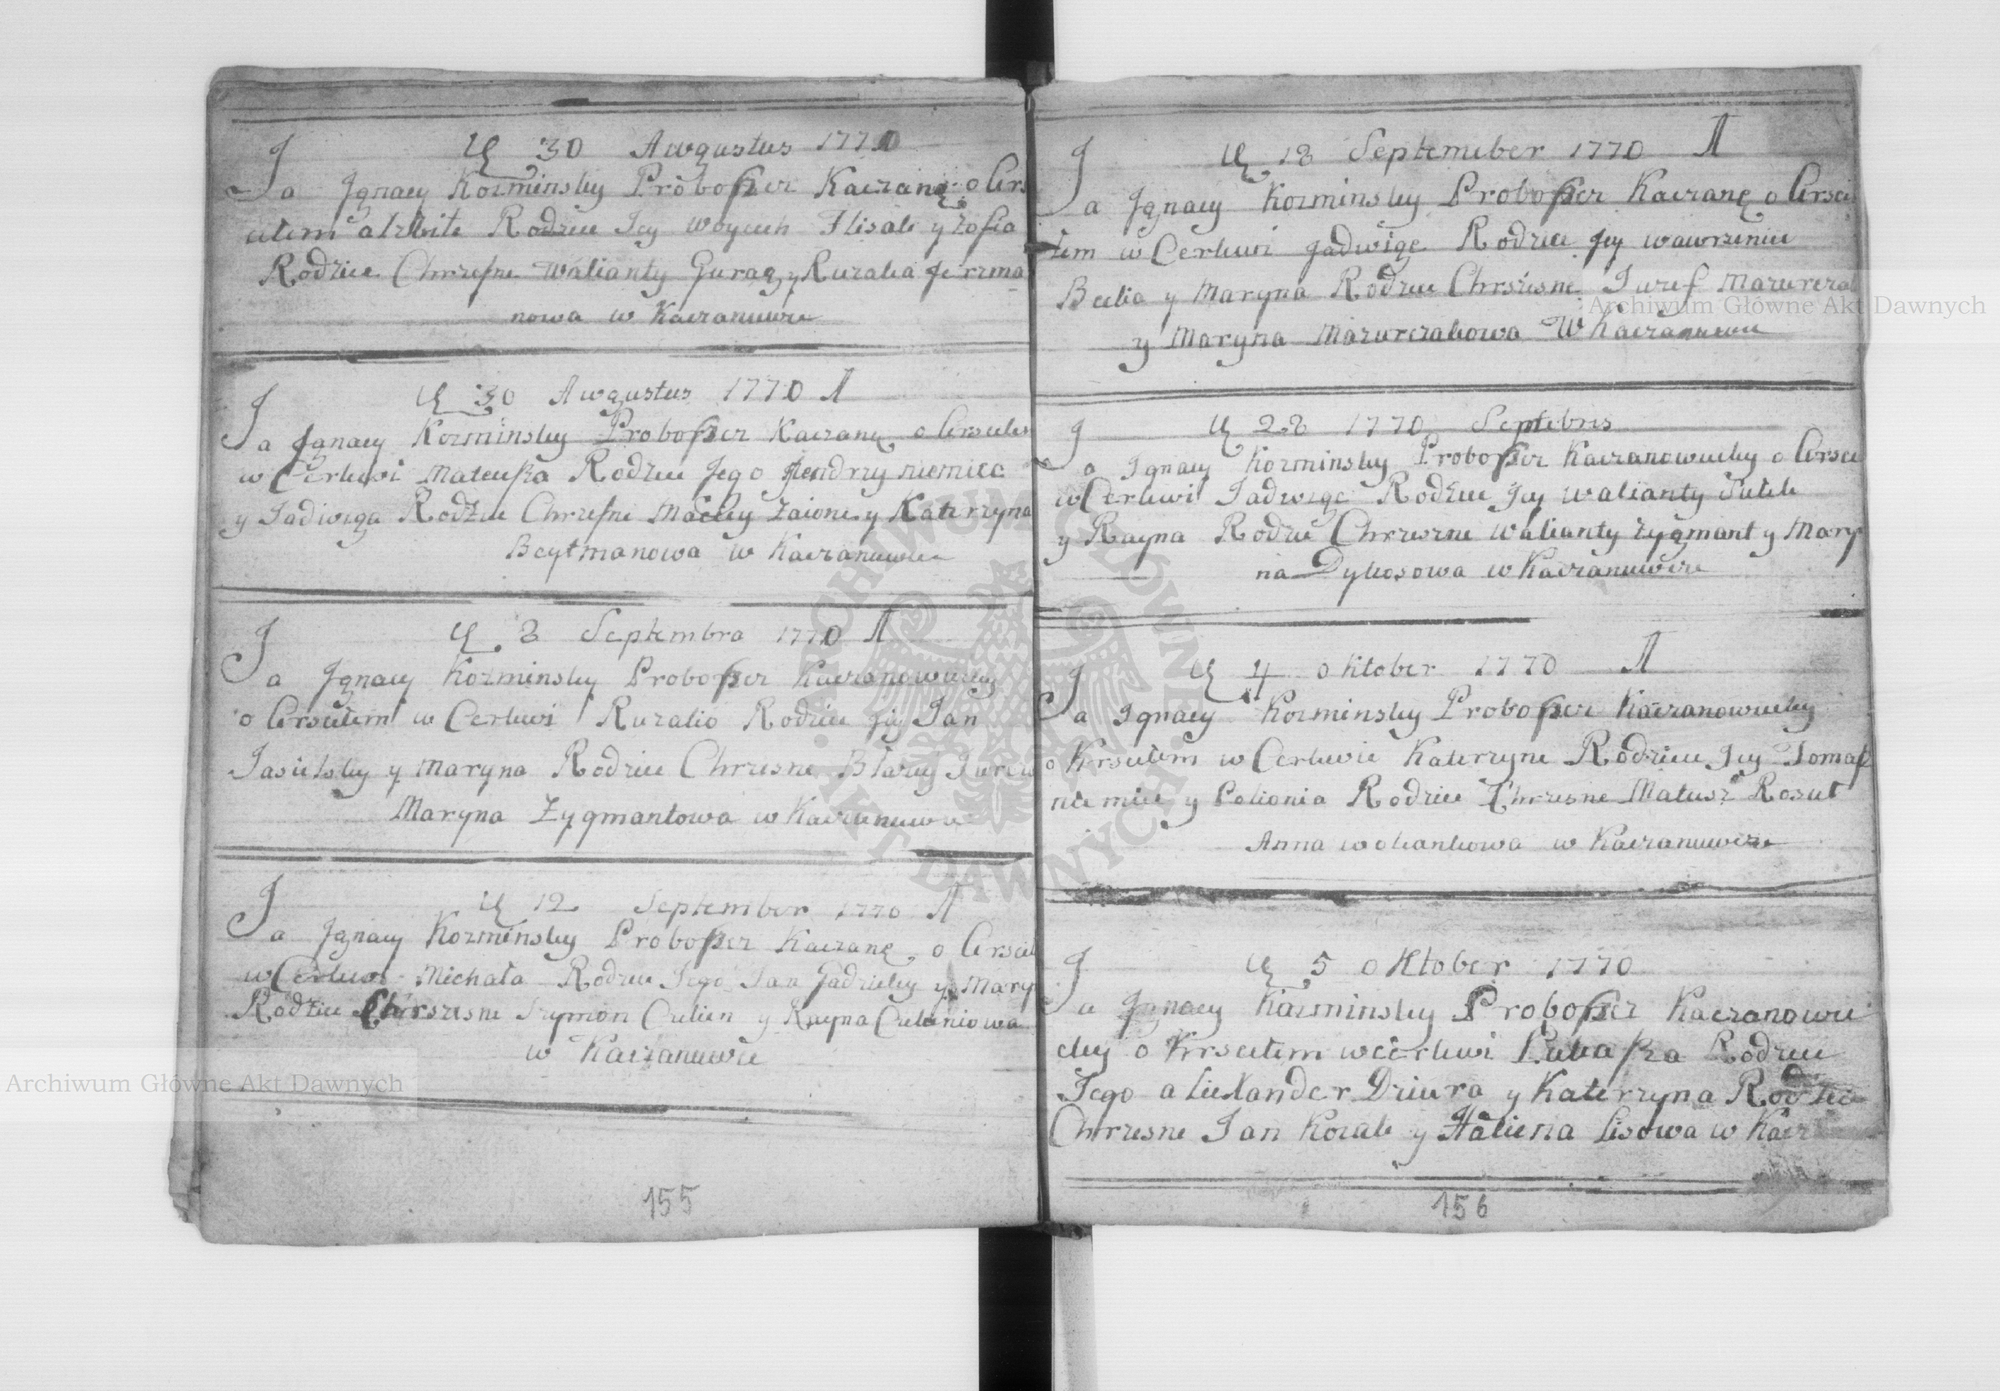 30 Awgustus 1770
Ja Jgnacy Kozminsky Proboszcz Kaczanę o Crs
citem Rodzice Jey woycieh y Zofia
Rodzice Chrzesne walianty y Ruzalia
nowa w Kaczanuwce
30 Awgustus 1770
Ja Jgnacy Kozminsky Proboszcz Kaczanę o
w Cerkwi Mateusza Rodzice Jego niemiec
y Jadwiga Rodzice Chrzesne y Katerzyna
Beytmanowa w Kaczanuwce
8 Septembra 1770
Ja Jgnacy Kozminsky Proboszcz Kaczanowiecky
o Crscitem w Cerkwi Ruzalio Rodzice Jey Jan
Jasielsky y Maryna Rodzice Chrzesne
Maryna Zygmantowa w Kaczanuwce
12 September 1770
Ja Jgnacy Kozminsky Proboszcz Kaczanę o
w Cerkwi Michała Rodzice Jego Jan y Mary
Rodzice Chrszesne Szymon y Rayna
w Kaczanuwce
155
18 September 1770
Ja Jgnacy Kozminsky Proboszcz Kaczanę o Crsci
tem w Cerkwi Jadwigę Rodzice Jey wawrzeniec
y Maryna Rodzice Chrszesne Juzef Mazurczak
y Maryna Mazurczakowa w Kaczanuwce
28 1770 Septebris
Ja Jgnacy Kozminsky Proboszcz Kaczanowiecky o Crsci
w Cerkwi Jadwigę Rodzice Jey walianty
y Rayna Rodzice Chrzeszne walianty Zygmant y Mary
na Dykosowa w Kaczanuwce
4 oktober 1770
Ja Jgnacy Kozminsky Proboszcz Kaczanowiecky
o Krscitem w Cerkwie Katerzyne Rodzice Jey Tomasz
niemiec y Polionia Rodzice Chrzesne Matusz
Anna woliankowa w Kaczanuwcze
5 oktober 1770
Ja Jgnacy Kozminsky Proboszcz Kaczanowie
cky o Krscitem w cerkwi Łukasza Rodzice
Jego aliexander Dziura y Katerzyna Rodzice
Chrzesne Jan Kozak y Haliena Lisowa w Kacz
156
Archiwum Główne Akt Dawnych
Archiwum Główne Akt Dawnych
ARCHIWUM GŁÓWNE
AKT DAWNYCH